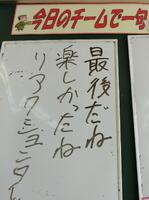 今日のチームで一句
最後だね
楽しかったね
リアクションタイ